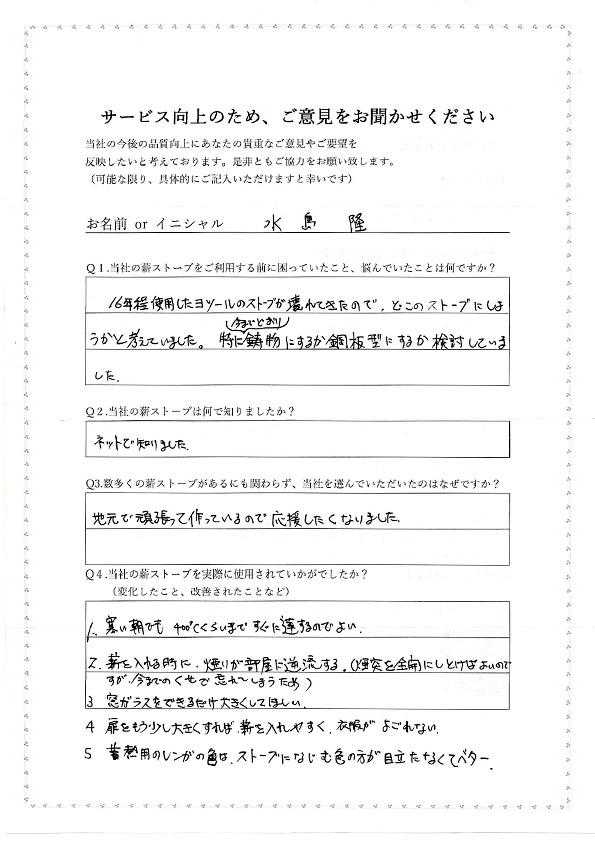 サービス向上のため、ご意見をお聞かせください
当社の今後の品質向上にあなたの貴重なご意見やご要望を
反映したいと考えております。是非ともご協力をお願い致します。
（可能な限り、具体的にご記入いただけますと幸いです）
お名前 or イニシャル 水島 隆
Q１.当社の薪ストーブをご利用する前に困っていたこと、悩んでいたことは何ですか？
16年程使用したヨツールのストーブが壊れてきたので、どこのストーブにしよ
今までどおり
うかと考えていました。特に鋳物にするか鋼板型にするか検討していま
した。
Q２.当社の薪ストーブは何で知りましたか？
ネットで知りました。
Q3.数多くの薪ストーブがあるにも関わらず、当社を選んでいただいたのはなぜですか？
地元で頑張って作っているので応援したくなりました。
Q４.当社の薪ストーブを実際に使用されていかがでしたか？
（変化したこと、改善されたことなど）
1. 寒い朝でも 400℃くらいまですぐに達するのでよい。
2. 薪を入れる時に、煙りが部屋に逆流する。（煙突を全開にしとけばよいので
すが、今までのくせで忘れてしまうため）
3 窓ガラスをできるだけ大きくしてほしい。
4 扉をもう少し大きくすれば、薪を入れやすく、衣服がよごれない。
5 蓄熱用のレンガの色は、ストーブになじむ色の方が目立たなくてベター。